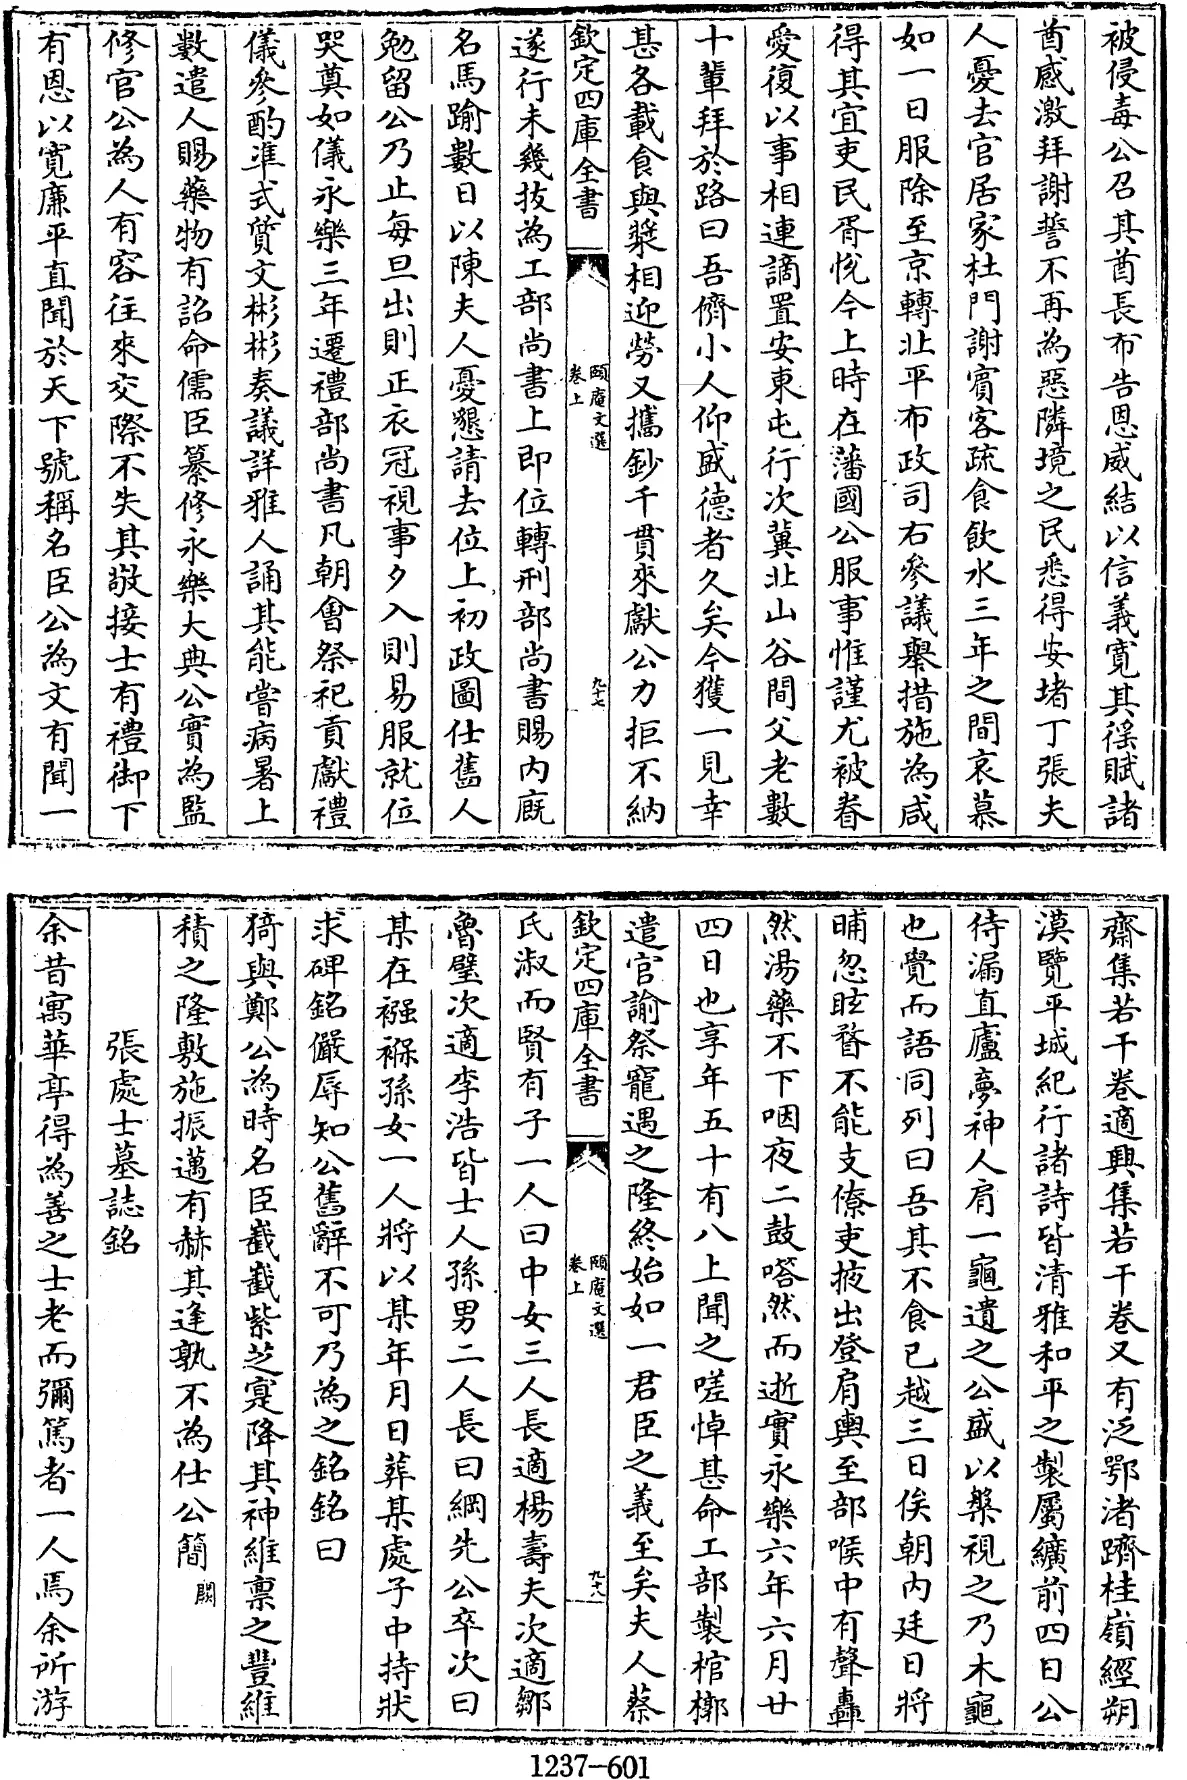 被侵毒公召其酋長布告恩威結以信義寛其徭賦諸
酋感激拜謝誓不再為惡隣境之民悉得安堵丁張夫
人憂去官居家杜門謝賓客疏食飲水三年之間哀慕
如一日服除至京轉北平布政司右參議舉措施為咸
得其宜吏民胥悅今上時在藩國公服事惟謹尤被眷
愛復以事相連謫置安東屯行次冀北山谷間父老數
十輩拜於路曰吾儕小人仰盛德者久矣今獲一見幸
甚各載食與漿相迎勞又攜鈔千貫來獻公力拒不納
欽定四庫全書
頤庵文選
卷上
九十七
遂行未幾拔為工部尚書上即位轉刑部尚書賜内廐
名馬踰數日以陳夫人憂懇請去位上初政圖仕舊人
勉留公乃止每旦出則正衣冠視事夕入則易服就位
哭奠如儀永樂三年遷禮部尚書凡朝會祭祀貢獻禮
儀參酌準式質文彬彬奏議詳雅人誦其能嘗病暑上
數遣人賜藥物有詔命儒臣纂修永樂大典公實為監
修官公為人有容往來交際不失其敬接士有禮御下
有恩以寛廉平直聞於天下號稱名臣公為文有聞一
齋集若干卷適興集若干卷又有泛鄂渚躋桂嶺經朔
漠覽平城紀行諸詩皆清雅和平之製屬纊前四日公
待漏直廬夢神人肩一龜遺之公盛以槃視之乃木龜
也覺而語同列曰吾其不食已越三日俟朝内廷日將
晡忽眩瞀不能支僚吏掖出登肩輿至部喉中有聲轟
然湯藥不下咽夜二鼓嗒然而逝實永樂六年六月廿
四日也享年五十有八上聞之嗟悼甚命工部製棺槨
遣官諭祭寵遇之隆終始如一君臣之義至矣夫人蔡
欽定四庫全書
頤庵文選
卷上
九十八
氏淑而賢有子一人曰中女三人長適楊壽夫次適鄒
魯璧次適李浩皆士人孫男二人長曰綱先公卒次曰
某在襁褓孫女一人將以某年月日葬某處子中持狀
求碑銘儼辱知公舊辭不可乃為之銘銘曰
猗與鄭公為時名臣巀巀紫芝寔降其神維稟之豐維
積之隆敷施振邁有赫其逢孰不為仕公簡闕
張處士墓誌銘
余昔寓華亭得為善之士老而彌篤者一人焉余所游
1237-601